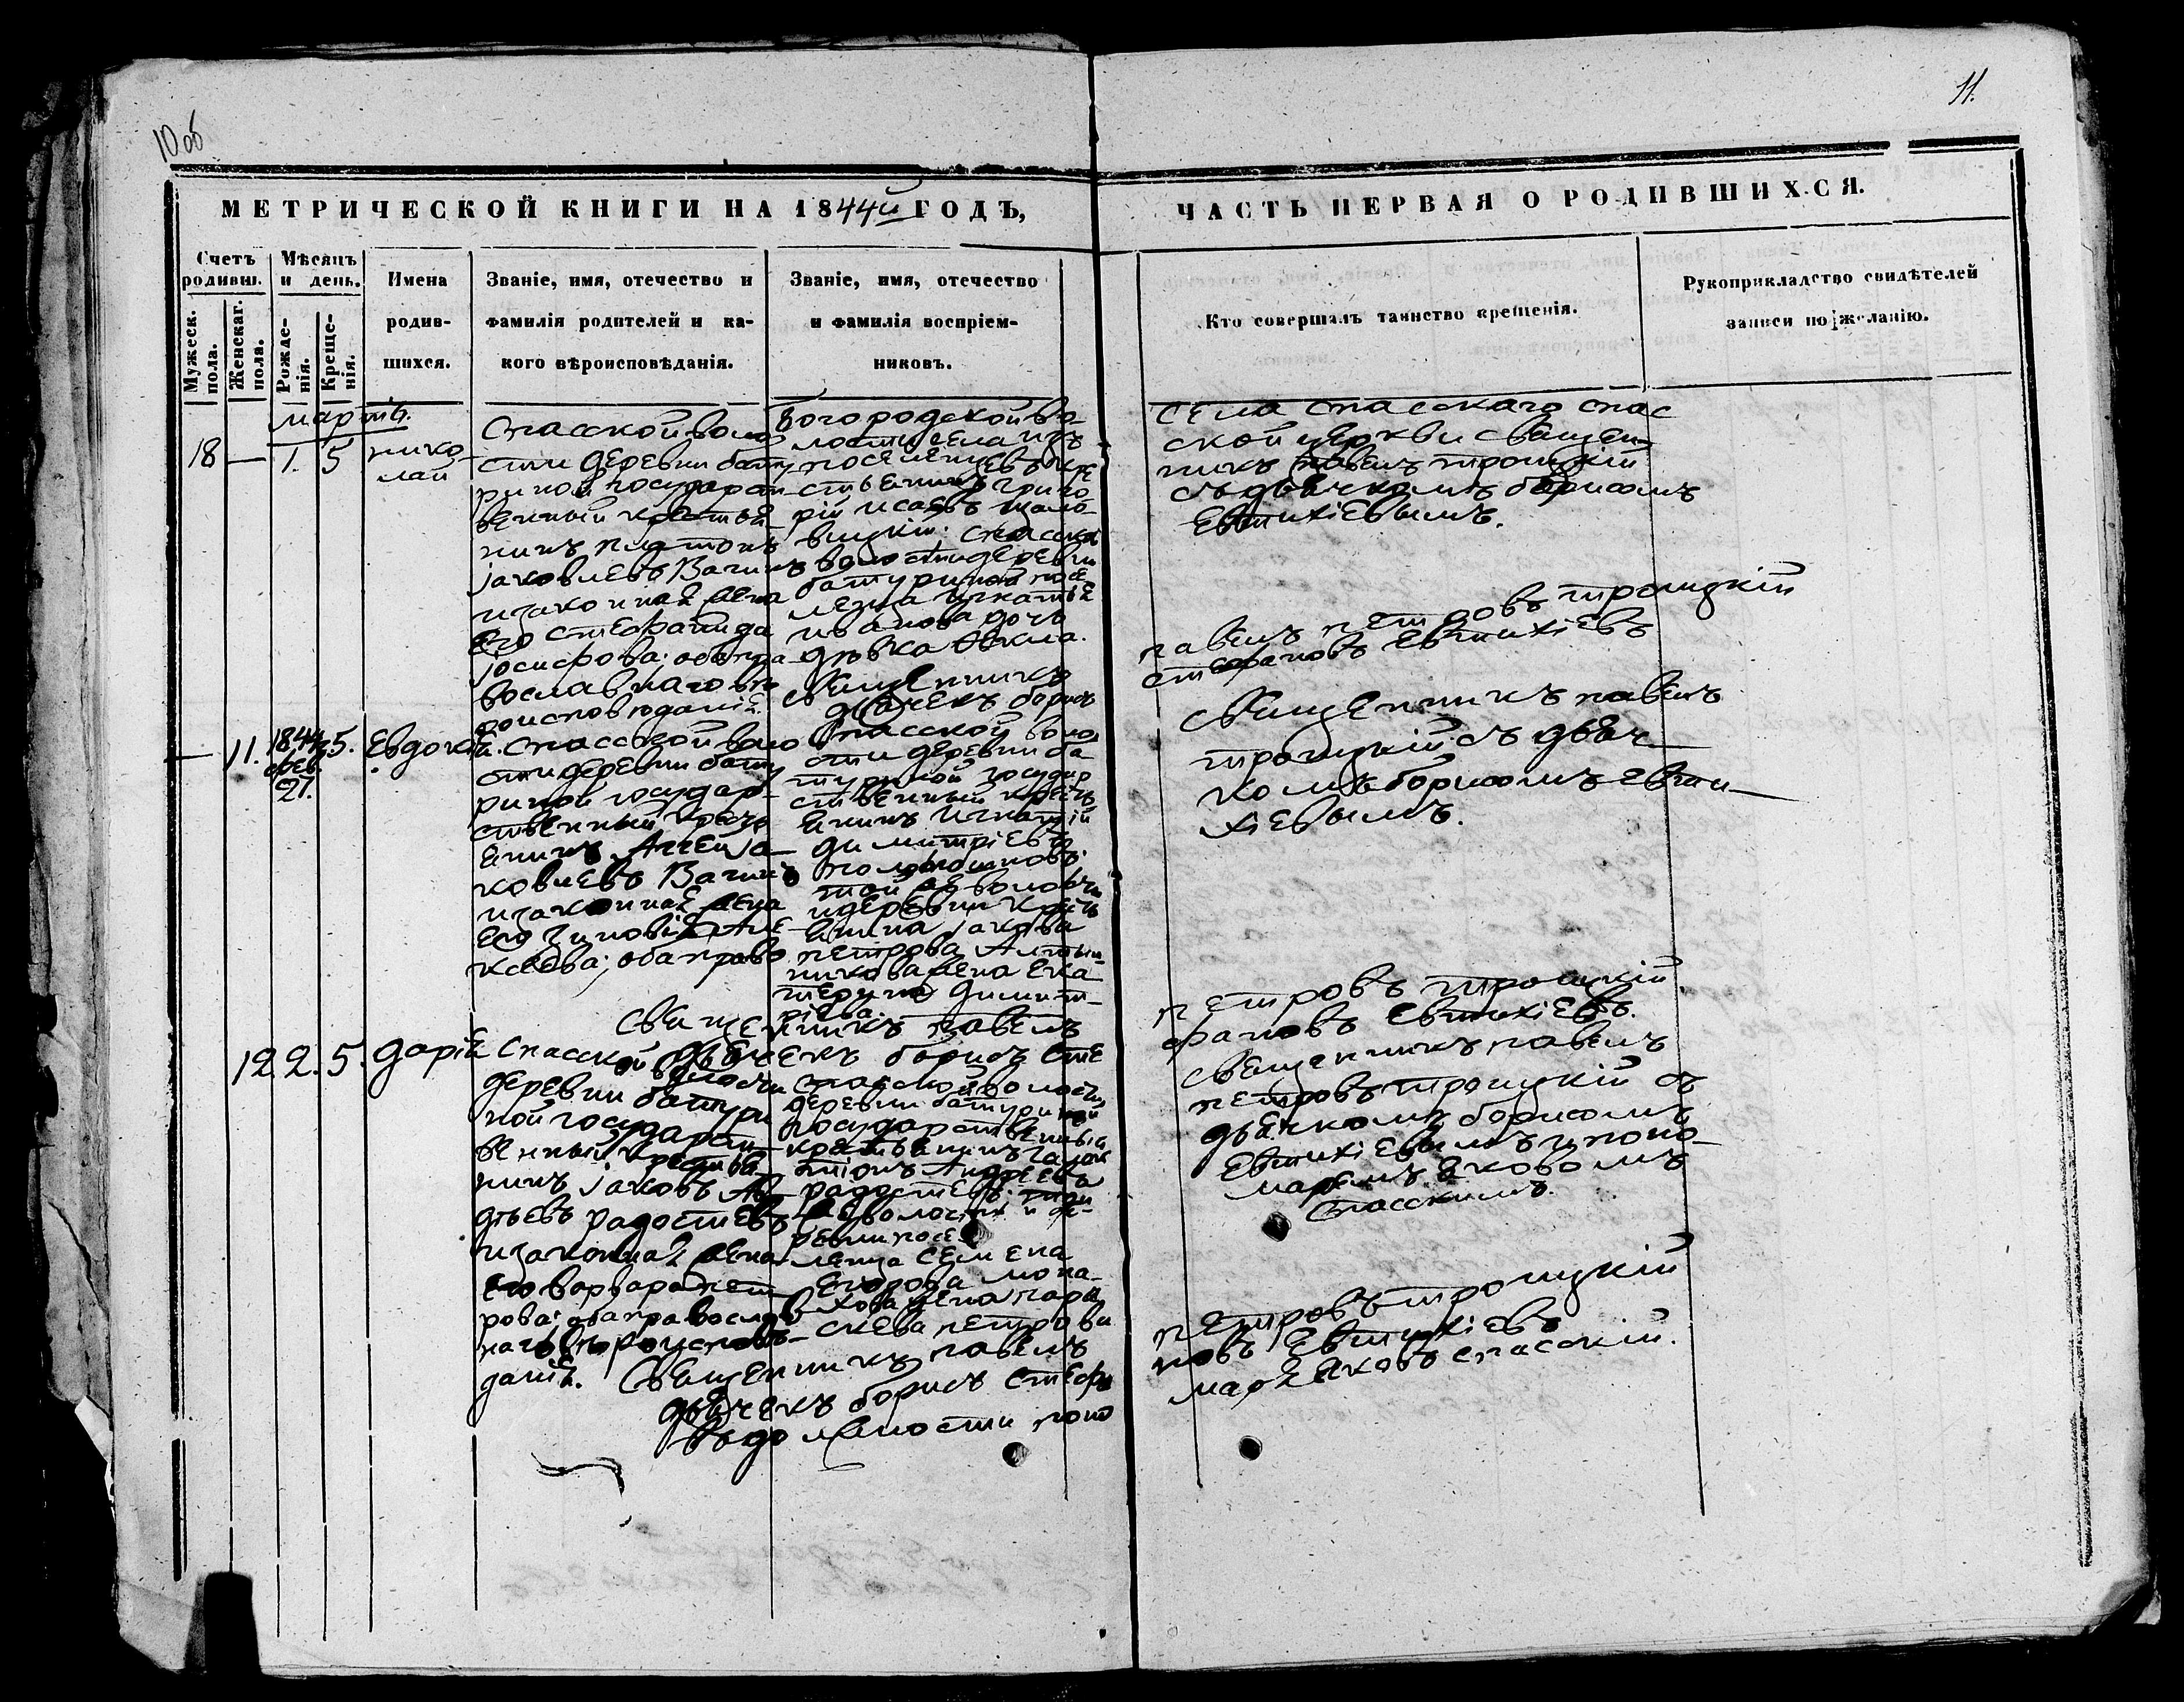 10 об
11.
МЕТРИЧЕСКОЙ КНИГИ НА 1844й ГОДЪ,
ЧАСТЬ ПЕРВАЯ О РОДИВШИХСЯ.
Счетъ родивш.
Мужеск. пола.
Женскаг. пола.
Мѣсяцъ и день.
Рожде-
нія.
Креще-
нія.
Имена
родив-
шихся.
Званіе, имя, отечество и
фамилія родителей и ка-
кого вѣроисповѣданія.
Званіе, имя, отечество
и фамилія воспріем-
никовъ.
Кто совершалъ таинство крещенія.
Рукоприкладство свидѣтелей
записи по желанію.
мартъ.
18 — 1. 5
нико-
лай
Спасской воло
сти деревни бату
риной государст
венный крестья
нинъ платонъ
іаковлевъ Вагинъ
изаконная жена
Его стефанида
іосифова; оба пра
вославнаго вѣ
роисповѣданія.
Богородской во-
лости села изъ
поселенцевъ кре
стьянинъ григо
рій исаевъ
спасской
волости деревни
батуриной посе
ленца игнатья
иванова дочь
дѣвка Ѳекла.
Священникъ
дьячекъ борисъ
села спасскаго спас
ской церкви священ
никъ павелъ троицкій
съ дьячкомъ борисомъ
Евтихіевымъ.
павелъ петровъ троицкій
стефановъ Евтихіевъ
— 11. 1844 фев. 27. 5. Евдокія.
Спасской воло
сти деревни бату
риной государ
ственный кресть
янинъ Алексѣй іа
ковлевъ Вагинъ
изаконная жена
Его Зиновія Але
ксѣева; оба право
Спасской воло
сти деревни ба
туриной государ
ственный кресть
янинъ Игнатій
димитріевъ
той же волости
и деревни кресть
янина іакова
петрова
жена Ека
терина димит-
ріева.
Священникъ павелъ
дьячекъ борисъ Сте
Священникъ павелъ
троицкій съ дьяч
комъ борисомъ Евти
хіевымъ.
петровъ троицкій.
фановъ Евтихіевъ.
12. 2. 5. дарія
Спасской волости
деревни батури
ной государст
венный крестья
нинъ іаковъ Ав
дѣевъ радостевъ
изаконная жена
его варвара пет
рова; оба православ
наго вѣроисповѣ-
данія.
Спасской волости
деревни батуриной
государственный
крестьянинъ галак
тіонъ Андреевъ
радостевъ: той
же волости и де-
ревни посе
ленца семена
Егорова мона
хова жена пара
скева петрова
Священникъ павелъ
дьячекъ борисъ стефа
въ должности поно
Священникъ павелъ
петровъ троицкій съ
дьячкомъ борисомъ
Евтихіевымъ и поно-
маремъ Яковомъ
спасскимъ.
петровъ троицкій
новъ Евтихіевъ
марь Яковъ спасскій.